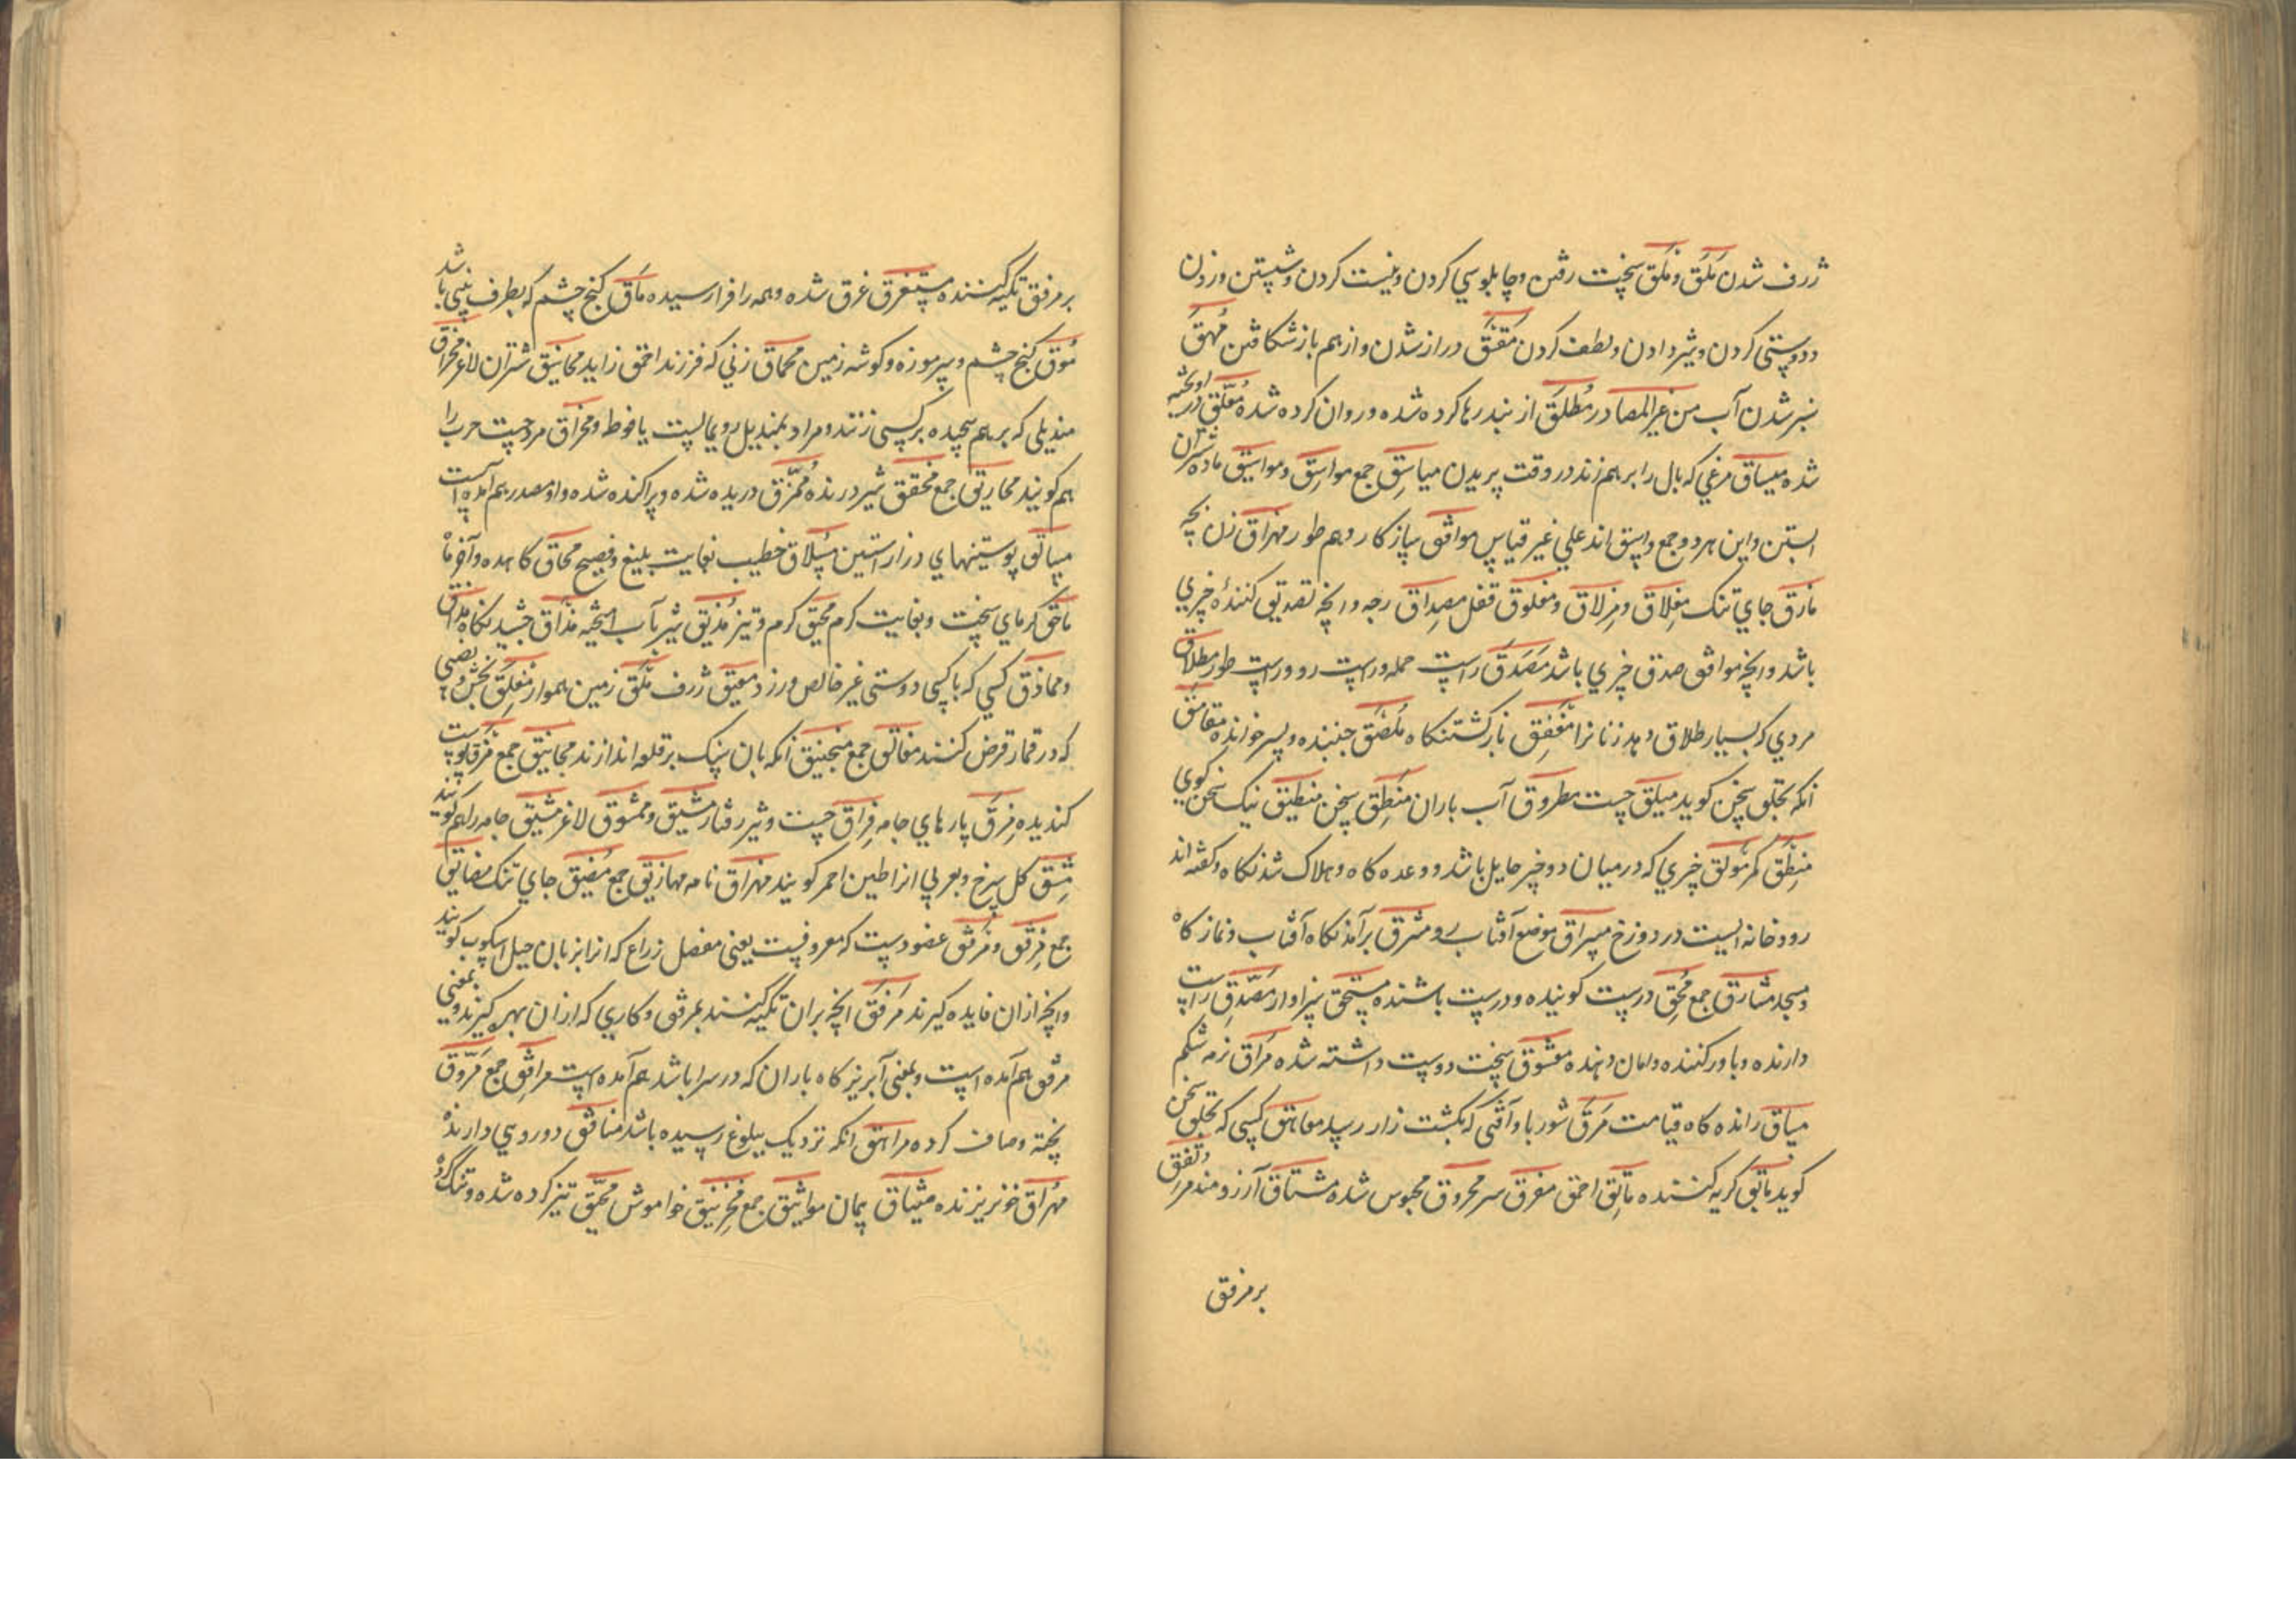 ژرف شدن مَلَق و مَلق سخت رفتن و چابلوسي كردن و نيست كردن و شستن و زدن
و دوستى كردن و شير دادن و لطف كردن مَقَق دراز شدن و از هم باز شكافتن مُهَق
سبز شدن آب من غير المصادر مُطلَق از بند رها كرده شده و روان كرده شده مُعلّق در اويخته
شده ميساق مرغي كه بال را بر هم زند در وقت پريدن مياسِق جمع مواسِق و مواسيق ماده شتران
ابستن و اين هر دو جمع واسق اند على غير قياس موافق سازكار و هم طور مهزاق زن
مازق جاي تنك مِغلاق و مِزلاق و مغلوق قفل مِصداق رجه و انچه تصديق كنندهٔ چيزي
باشد و انچه موافق صدق چيزي باشد مَصدَق راست حمله و راست رو و راست طور مِطلاق
مردي كه بسيار طلاق دهد زنانرا مَغفِق باز كشتنكاه مُلصَق جنبنده و پسر خوانده مقامق
انكه بحلق سخن كويد ميلق چست مطروق آب باران مَنطِق سخن منطيق نيك سخن كوي
مِنطَق كمر مَوبِق چيزي كه در ميان دو چيز حايل باشد و وعده كاه و هلاك شدنكاه و كفته اند
رودخانه ايست در دوزخ ميسراق موضع آفتاب رو مشرق برآمدنكاه آفتاب و نماز كاه
و مسجد مشارق جمع مُحِق درست كوينده و درست باشنده مستحق سزاوار مصدّق راست
دارنده و باور كننده و امان دهنده معشوق سخت دوست داشته شده مَراق نرمه شكم
مساق رانده كاه قيامت مَرَق شوربا و آفتى كه بكشت زار رسد مقامق كسى كه بحلق سخن
كويد ماق كريه كننده مائق احمق مفرق سر محروق محبوس شده مشتاق آرزومند مرتفق
بر مرفق
بر مرفق تكيه كننده مستغرق غرق شده و همه را فرا رسيده مَاق كنج چشم كه بطرف بينى باشد
مُوق كنج چشم و سر موزه و كوشه زمين مِحماق زنى كه فرزند احمق زايد محانيق شتران لاغر مِخراق
منديلى كه بر هم پيچيده بر كسى زنند و مراد بمنديل روى ماليست يا فوطه و مخراق مرد چست حرب را
هم كويند مخاريق جمع شير درنده مُمزّق دريده شده و پراكنده شده و او مصدر هم امده است
مساتق پوستينهاي دراز استين مِسلاق خطيب بغايت بليغ و فصيح محاق كاهده و آخر ماه
ماحق كرماي سخت و بغايت كرم محيق كرم و تيز مُذيق شير بآب اميخته مذاق چشيدنكاه مذاق
و مماذق كسي كه با كسى دوستى غير خالص ورزد معيق ژرف مَلَق زمين هموار مِغلق بخش و نصيبى
كه در قمار قرض كنند مغالق جمع منجنيق انكه بان سنك بر قلعه اندازند مجانيق جمع مَرق پوست
كنديده مِزَق پارهاي جامه مِزاق چست و تيز رفتار مَشيق و ممشوق لاغر مشيق جامه را هم كويند
مِشق كل سرخ و بعربي انرا طين احمر كويند مهراق نامه مهاريق جمع مَضيق جاي تنك مضايق
جمع مِرفَق و مَرفِق عضوديست كه معروفست يعنى مفصل ذراع كه انرا بزبان جيل اسكوب كويند
و انچه از ان فايده كيرند مَرفَق انچه بران تكيه كنند بمرفق و كاري كه از ان بهره كيرند و بمعنى
مرفق هم آمده است و بمعنى آبريز كاه باران كه در سرا باشد هم آمده است مرافق جمع مَروّق
پخته و صاف كرده مراهق انكه نزديك ببلوغ رسيده باشد منافق دو روسي دارنده
مُهراق خونريزنده ميثاق پيمان مواثيق جمع مُخرَنبِق خاموش محمّق تيز كرده شده و تنك كرده